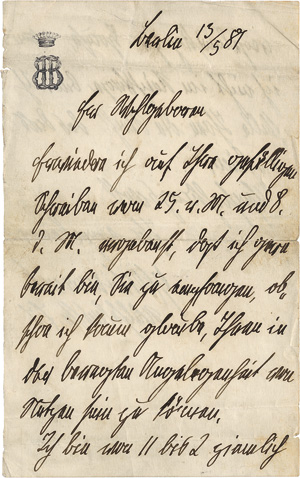 Berlin 13/5 81
Ew Wohlgeboren
erwiedre ich auf Ihre gefälligen
Schreiben vom 25. v. M. und 8.
d. M. ergebenst, daß ich gern
bereit bin, Sie zu empfangen, ob-
schon ich kaum glaube, Ihnen in
der bewegten Angelegenheit von
Nutzen sein zu können.
Ich bin von 11 bis 2 ziemlich